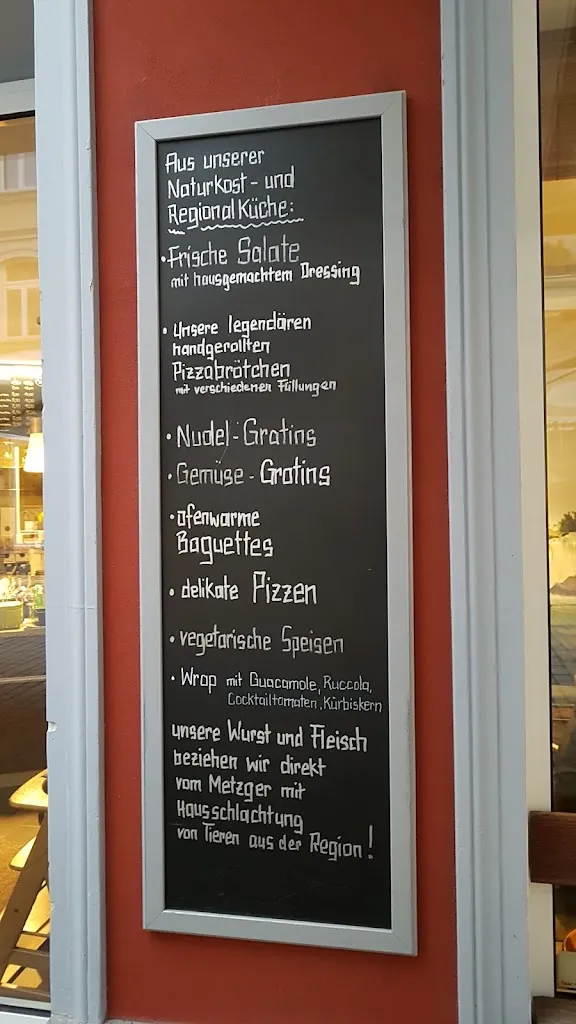 Aus unserer
Naturkost- und
Regional Küche:
• Frische Salate
mit hausgemachtem Dressing
• Unsere legendären
handgerollten
Pizzabrötchen
mit verschiedenen Füllungen
• Nudel-Gratins
• Gemüse-Gratins
• ofenwarme
Baguettes
• delikate Pizzen
• vegetarische Speisen
• Wrap mit Guacamole, Ruccola,
Cocktailtomaten, Kürbiskern
unsere Wurst und Fleisch
beziehen wir direkt
vom Metzger mit
Hausschlachtung
von Tieren aus der Region!